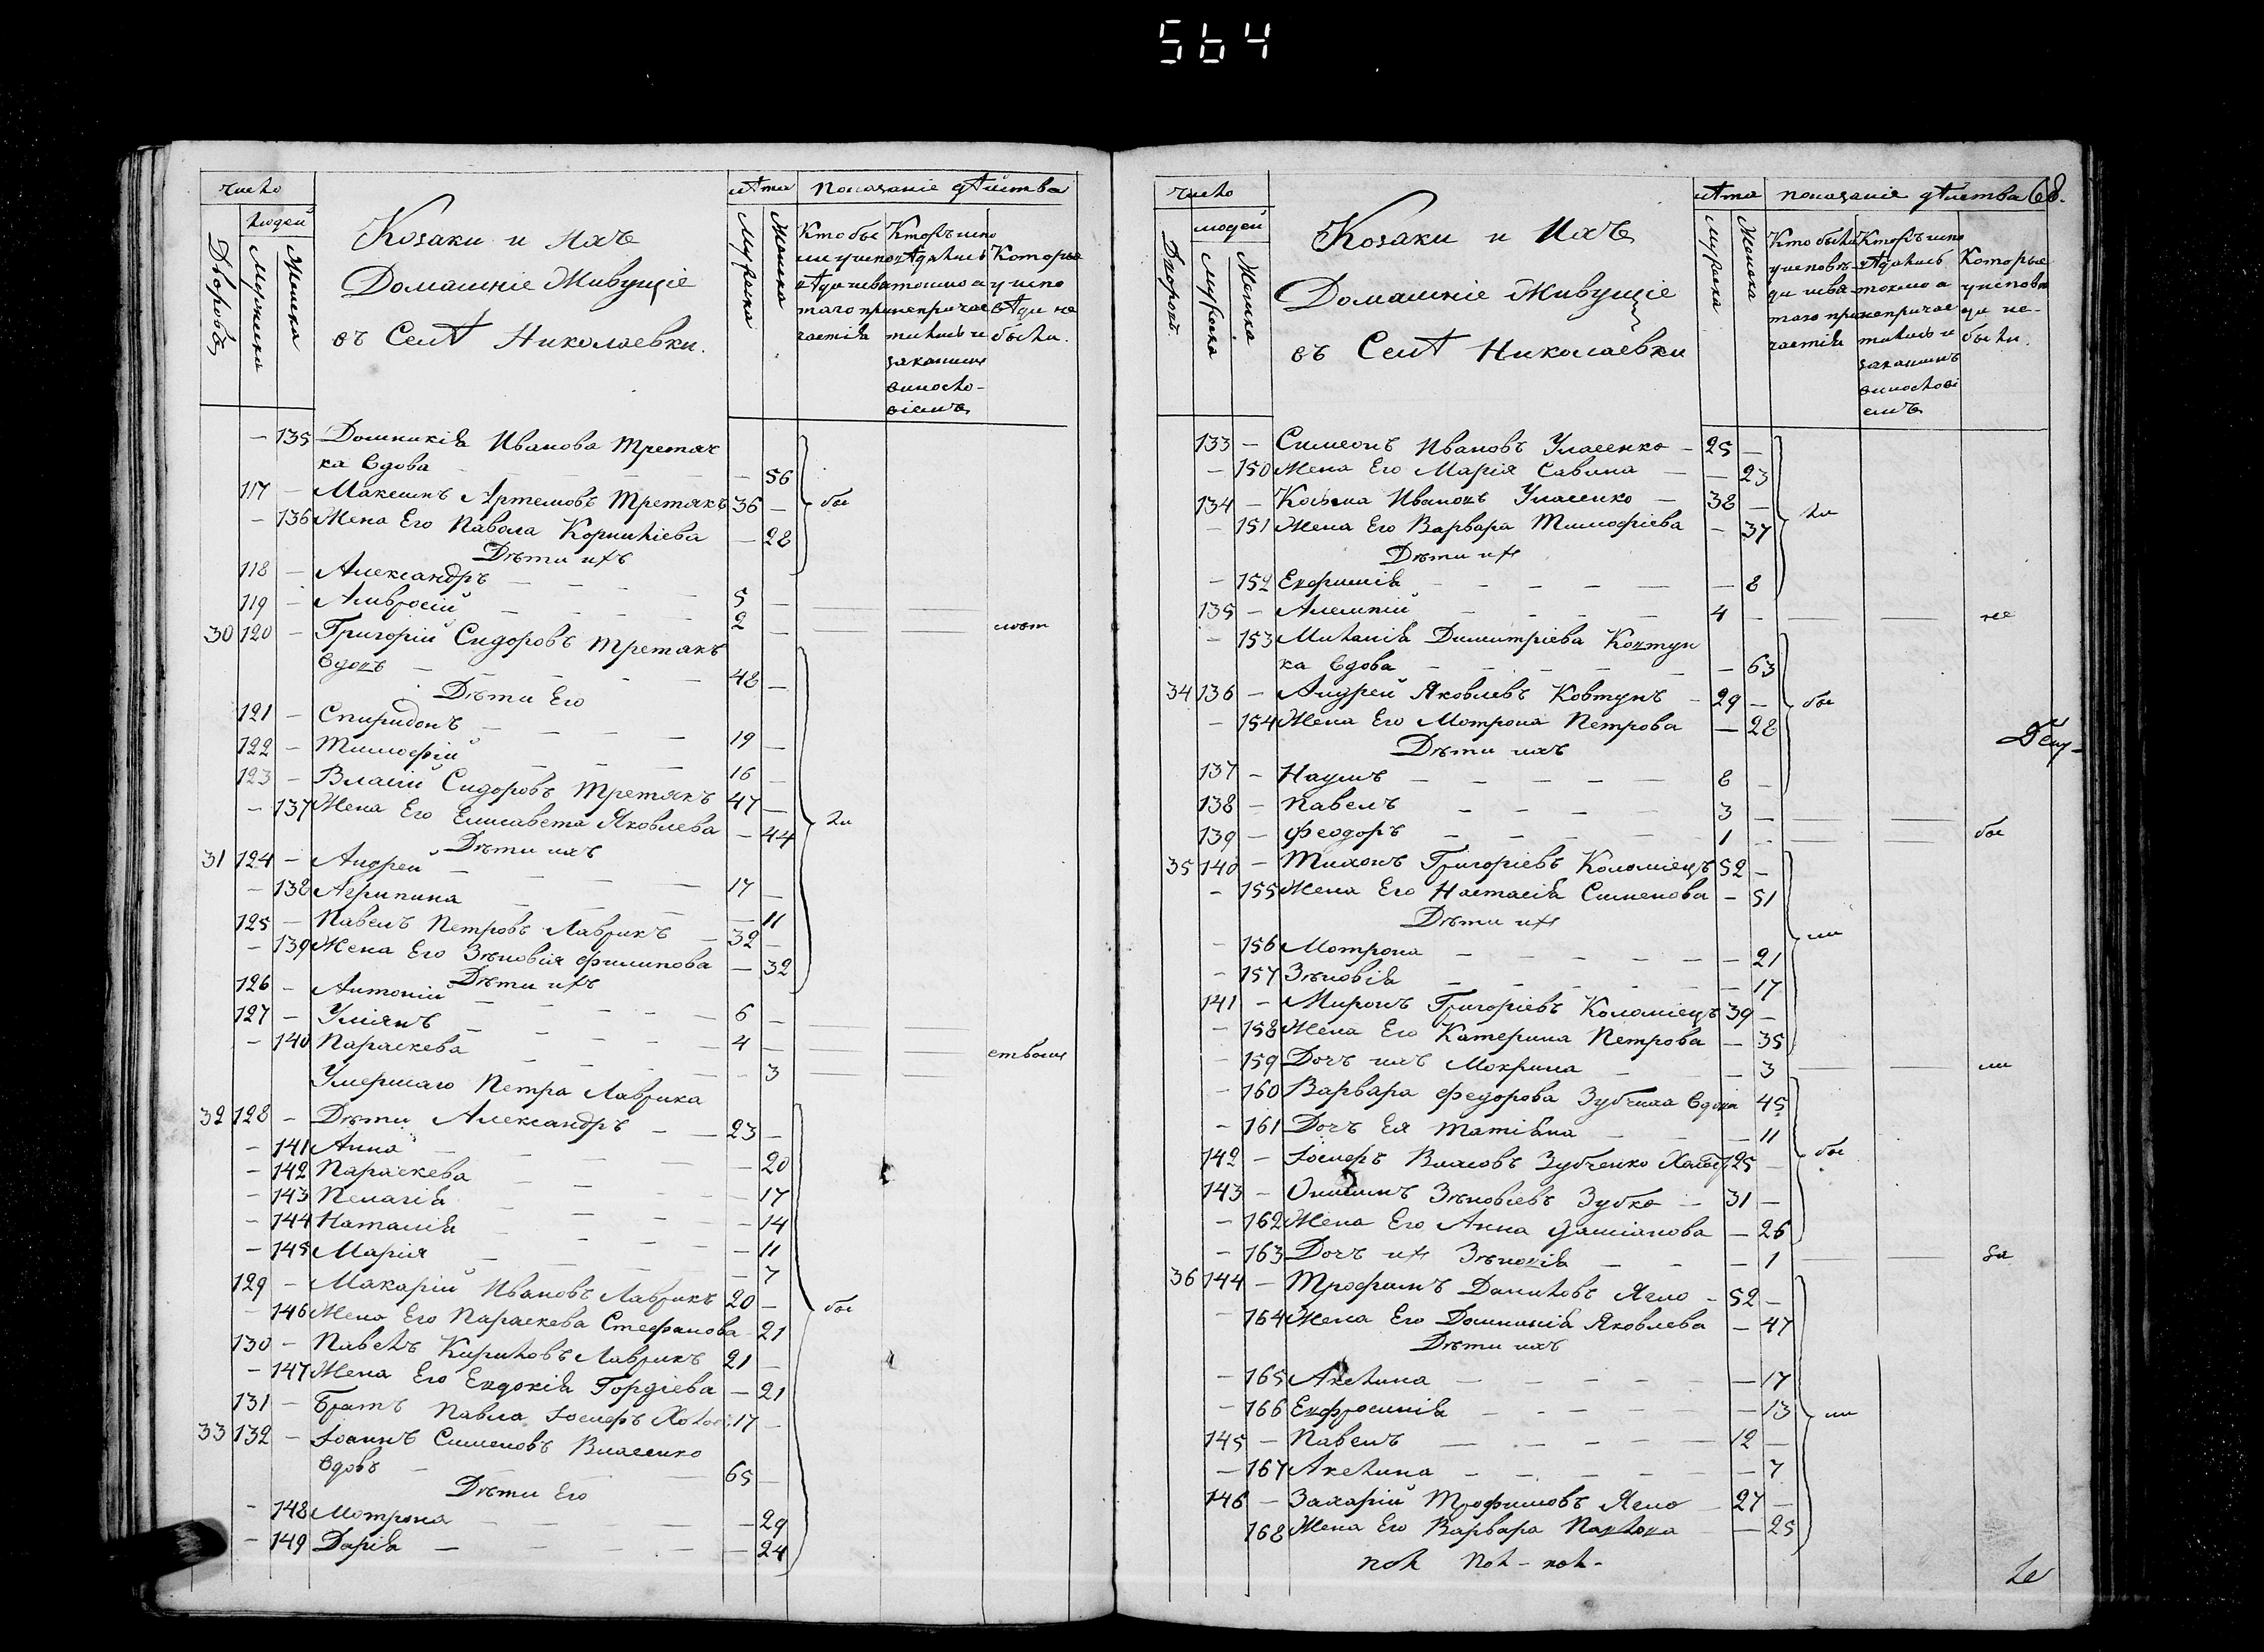 564
число
людей
Дворовъ
Мужеска
Женска
Козаки и ихъ
Домашніе Живущіе
въ Селѣ Николаевки.
лѣта
Мужеска
Женска
показаніе дѣйства
Которые
у испо
вѣди не
были.
– 135 Домникія Иванова Третяч
ка вдова – 56
117 – Максимъ Артемовъ Третякъ 36 –
бы
– 136 Жена Его Павола Корниліева – 28
Дѣти ихъ
118 – Александръ 5 –
119 – Амвросій 2 –
30 120 – Григорій Сидоровъ Третякъ
вдовъ 48 –
Дѣти Его
121 – Спиридонъ 19 –
122 – Тимофій 16 –
123 – Власій Сидоровъ Третякъ 47 –
– 137 Жена Его Елисавета Яковлева – 44
ли
Дѣти ихъ
31 124 – Андрей 17 –
– 138 Агрипина – 11
125 – Павелъ Петровъ Лаврикъ 32 –
– 139 Жена Его Зѣновія Филипова – 32
Дѣти ихъ
126 – Антоній 6 –
127 – Уліянъ 4 –
– 140 Параскева – 3
Умершаго Петра Лаврика
32 128 – Дѣти Александръ 23 –
– 141 Анна – 20
– 142 Параскева – 17
– 143 Пелагія – 14
– 144 Наталія – 11
– 145 Марія – 7
129 – Макарій Ивановъ Лаврикъ 20 –
бы
– 146 Жена Его Параскева Стефанова 21
130 – Павелъ Кириловъ Лаврикъ 21 –
– 147 Жена Его Евдокія Гордіева – 21
131 – Братъ Павла Іосифъ Холос: 17 –
33 132 – Іоаннъ Сименовъ Власенко
вдовъ 65 –
Дѣти Его
– 148 Мотрона – 29
– 149 Дарія – 24
68.
число
людей
Мужеска
Женска
Козаки и Ихъ
Домашніе Живущіе
въ Селѣ Николаевки
лѣта
Мужеска
Женска
показаніе дѣйства
Которые
у исповѣ
ди не-
были.
133 – Симеонъ Ивановъ Уласенко – 25 –
– 150 Жена Его Марія Савина – 23
134 – Косьма Ивановъ Уласенко – 38 –
ли
– 151 Жена Его Варвара Тимофіева – 37
Дѣти ихъ
– 152 Евфимія – 8
135 – Алемпій 4 –
не
– 153 Миланія Димитріева Ковтун
ка вдова – 63
34 136 – Андрей Яковлевъ Ковтунъ – 29 –
бы
– 154 Жена Его Мотрона Петрова – 28
Дѣти ихъ
137 – Наумъ 8 –
138 – Павелъ 3 –
139 – Феодоръ 1 –
бы
35 140 – Тихонъ Григоріевъ Коломіецъ 52 –
– 155 Жена Его Настасія Сименова – 51
Дѣти ихъ
– 156 Мотрона – 21
ли
– 157 Зѣновія – 17
141 – Миронъ Григоріевъ Коломіецъ 39 –
– 158 Жена Его Катерина Петрова – 35
– 159 Дочъ ихъ Мокрина – 3
ли
– 160 Варвара Федорова Зубчиха вдова 45
– 161 Дочъ Ея Татіана – 11
142 – Іосифъ Власовъ Зубченко 25 –
бы
143 – Онисимъ Зѣновіевъ Зубко – 31 –
– 162 Жена Его Анна Даміанова – 26
– 163 Дочъ ихъ Зѣновія – 1
36 144 – Трофимъ Даниловъ Ясно – 52 –
– 164 Жена Его Домникія Яковлева – 47
Дѣти ихъ
– 165 Акелина – 17
– 166 Евфросинія – 13
ли
145 – Павелъ 12 –
– 167 Акелина – 7
146 – Захарій Трофимовъ Ясно 27 –
168 Жена Его Варвара Павлова – 25